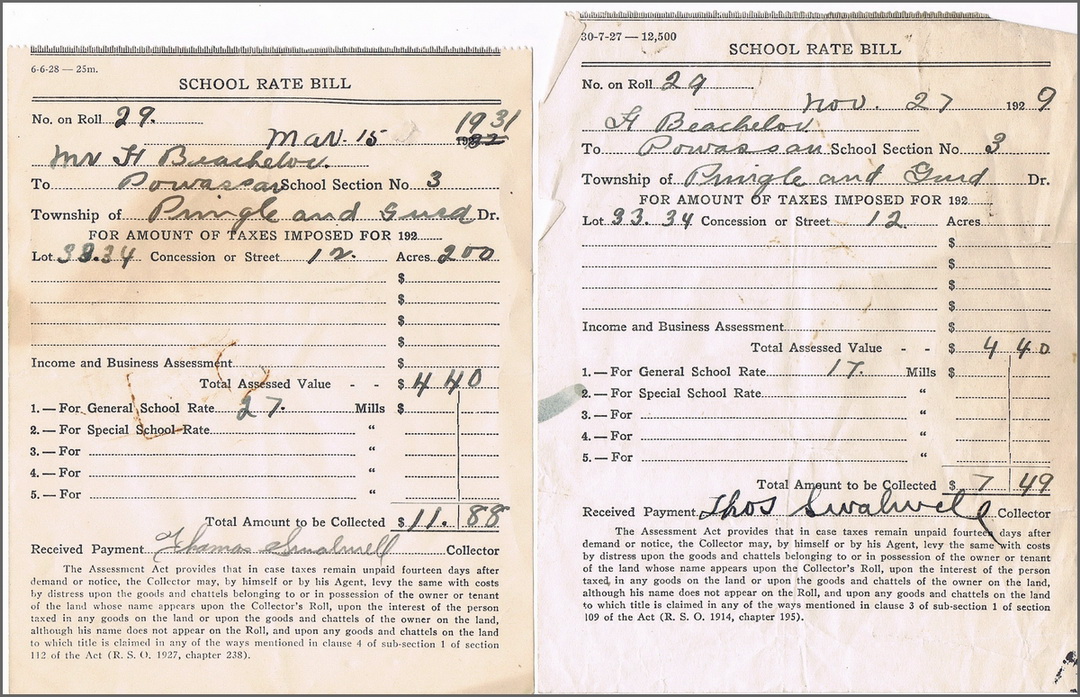 6-6-28 — 25m.
SCHOOL RATE BILL
No. on Roll 29.
Mar. 15 1931
Mr H Beachelor.
To Powassan School Section No 3
Township of Pringle and Gurd Dr.
FOR AMOUNT OF TAXES IMPOSED FOR 192
Lot 33.34 Concession or Street 12. Acres 200
$
$
$
$
Income and Business Assessment $
Total Assessed Value - - $ 440
1. — For General School Rate 27. Mills $
2. — For Special School Rate "
3. — For "
4. — For "
5. — For "
Total Amount to be Collected $ 11. 88
Received Payment Thomas Swalwell Collector
The Assessment Act provides that in case taxes remain unpaid fourteen days after
demand or notice, the Collector may, by himself or by his Agent, levy the same with costs
by distress upon the goods and chattels belonging to or in possession of the owner or tenant
of the land whose name appears upon the Collector's Roll, upon the interest of the person
taxed in any goods on the land or upon the goods and chattels of the owner on the land,
although his name does not appear on the Roll, and upon any goods and chattels on the land
to which title is claimed in any of the ways mentioned in clause 4 of sub-section 1 of section
112 of the Act (R. S. O. 1927, chapter 238).
30-7-27 — 12,500
SCHOOL RATE BILL
No. on Roll 29
Nov. 27 1929
H Beachelor
To Powassan School Section No 3
Township of Pringle and Gurd Dr.
FOR AMOUNT OF TAXES IMPOSED FOR 192
Lot 33.34 Concession or Street 12. Acres
$
$
$
$
Income and Business Assessment $
Total Assessed Value - - $ 440
1. — For General School Rate 17. Mills
2. — For Special School Rate "
3. — For "
4. — For "
5. — For "
Total Amount to be Collected $ 7 49
Received Payment Thos Swalwell Collector
The Assessment Act provides that in case taxes remain unpaid fourteen days after
demand or notice, the Collector may, by himself or by his Agent, levy the same with costs
by distress upon the goods and chattels belonging to or in possession of the owner or tenant
of the land whose name appears upon the Collector's Roll, upon the interest of the person
taxed, in any goods on the land or upon the goods and chattels of the owner on the land,
although his name does not appear on the Roll, and upon any goods and chattels on the land
to which title is claimed in any of the ways mentioned in clause 3 of sub-section 1 of section
109 of the Act (R. S. O. 1914, chapter 195).